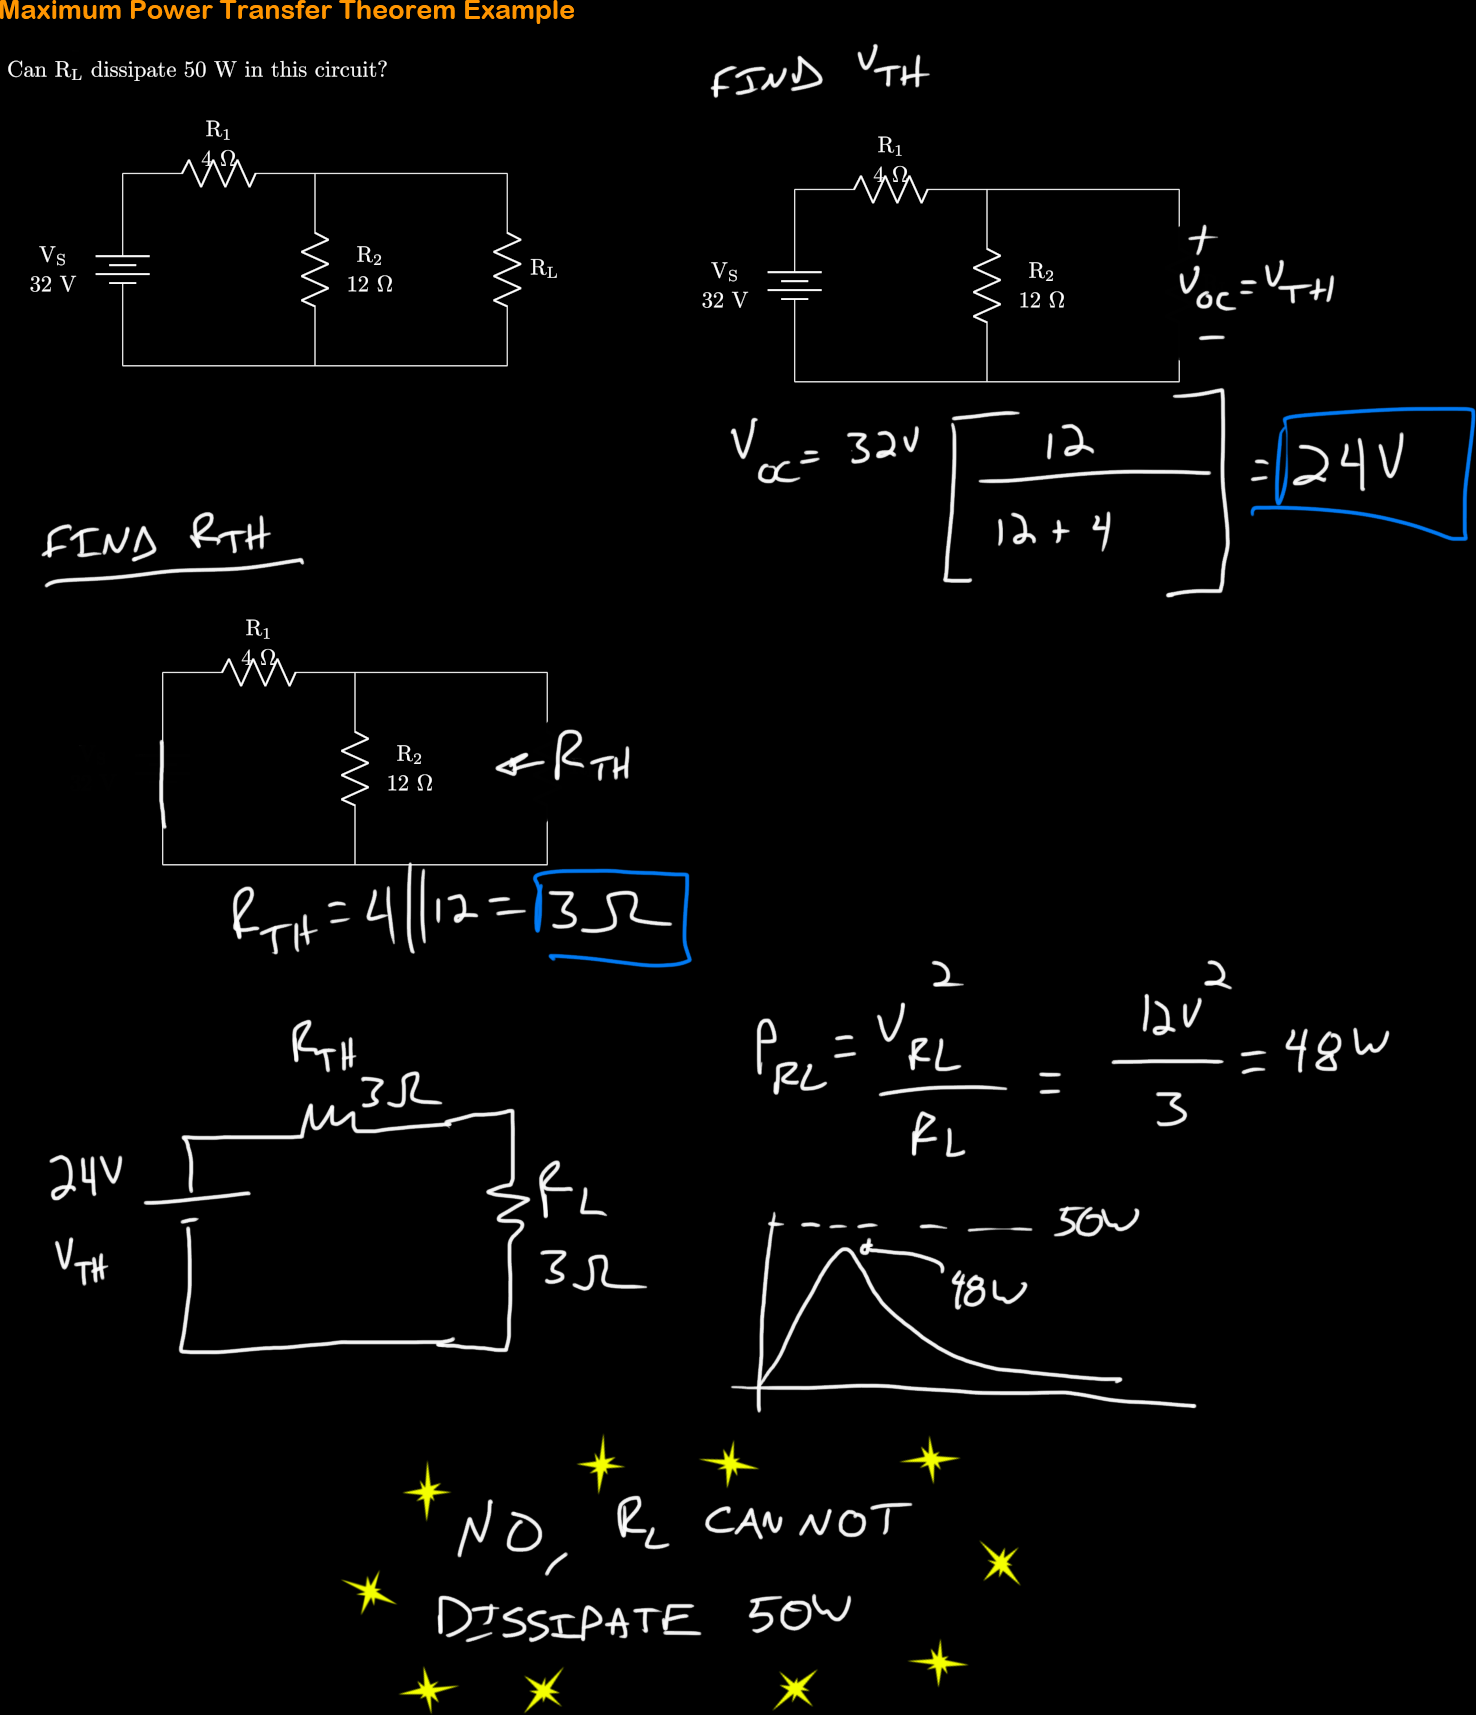 Maximum Power Transfer Theorem Example
Can R_L dissipate 50 W in this circuit?
R₁
4 Ω
V_S
32 V
R₂
12 Ω
R_L
FIND V_TH
R₁
4 Ω
V_S
32 V
R₂
12 Ω
+
V_OC = V_TH
−
V_OC = 32V [12 / (12 + 4)] = 24V
FIND R_TH
R₁
4 Ω
R₂
12 Ω
← R_TH
R_TH = 4 || 12 = 3Ω
R_TH
3Ω
24V
V_TH
R_L
3Ω
P_RL = V_RL² / R_L = 12V² / 3 = 48W
50W
48W
NO, R_L CANNOT
DISSIPATE 50W